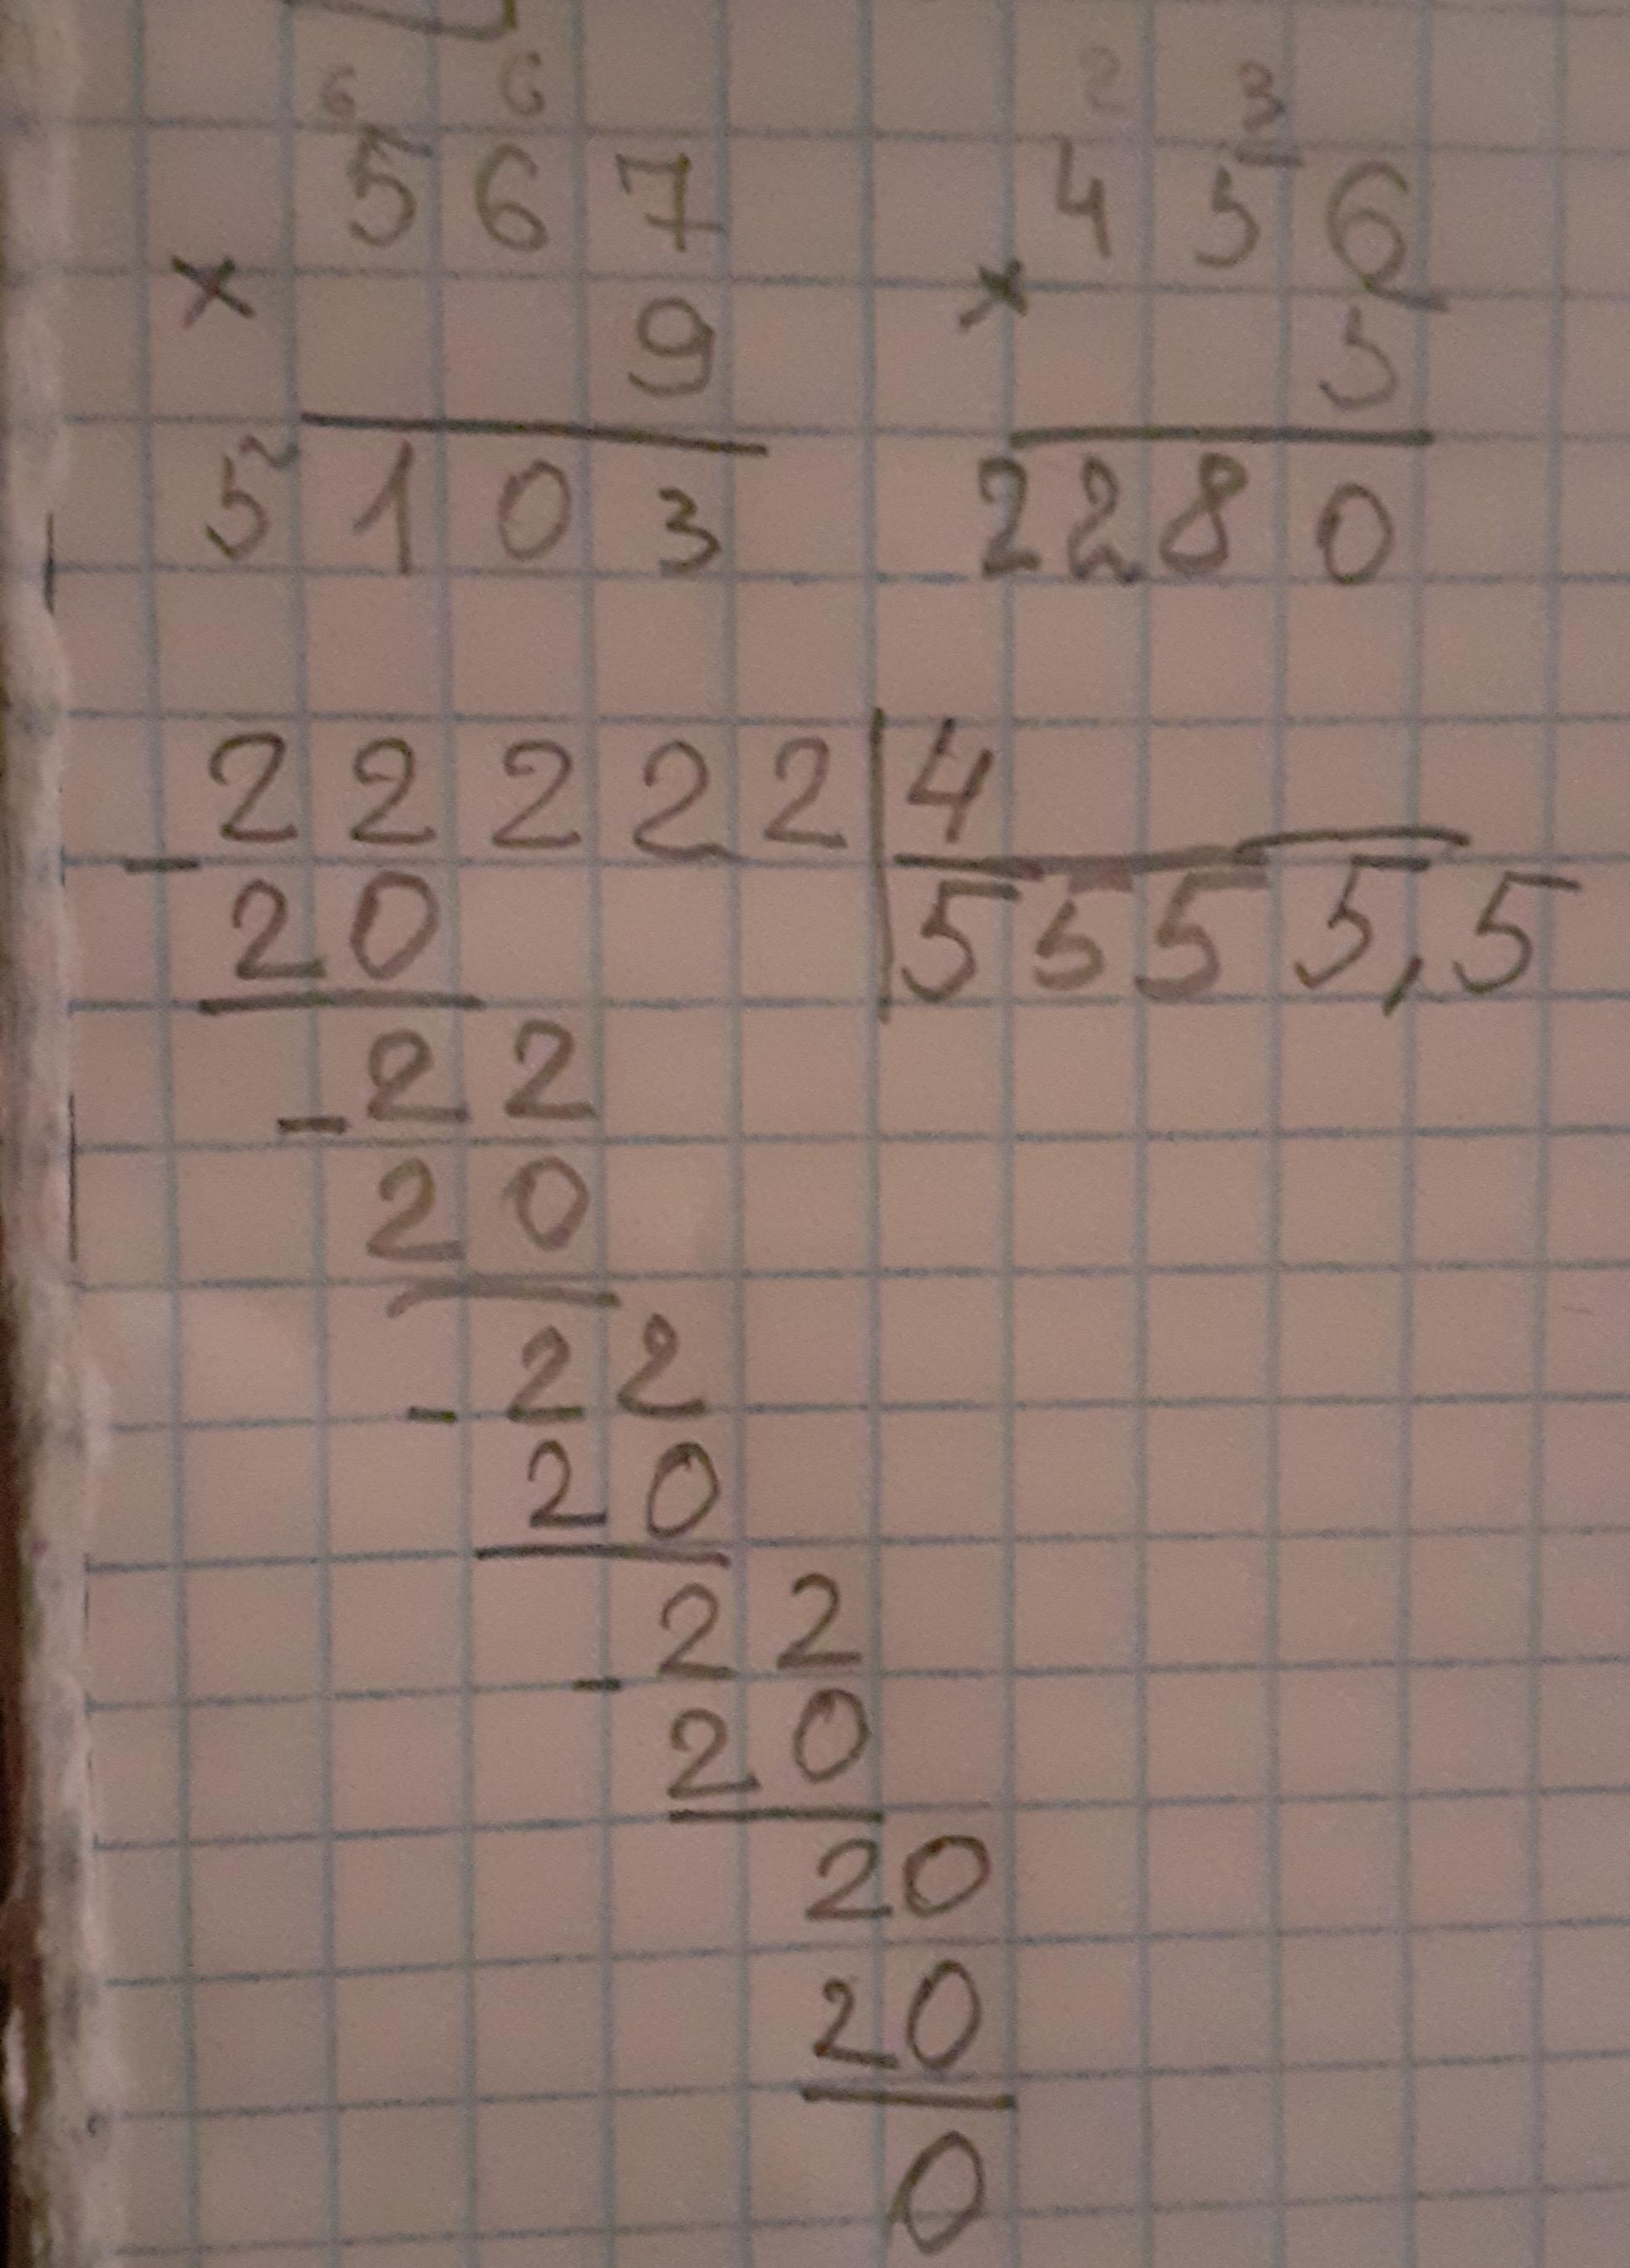 6 6
567
× 9
5103
2 3
456
× 5
2280
22222 | 4
5555,5
- 20
- 22
20
- 22
20
- 22
20
20
20
0